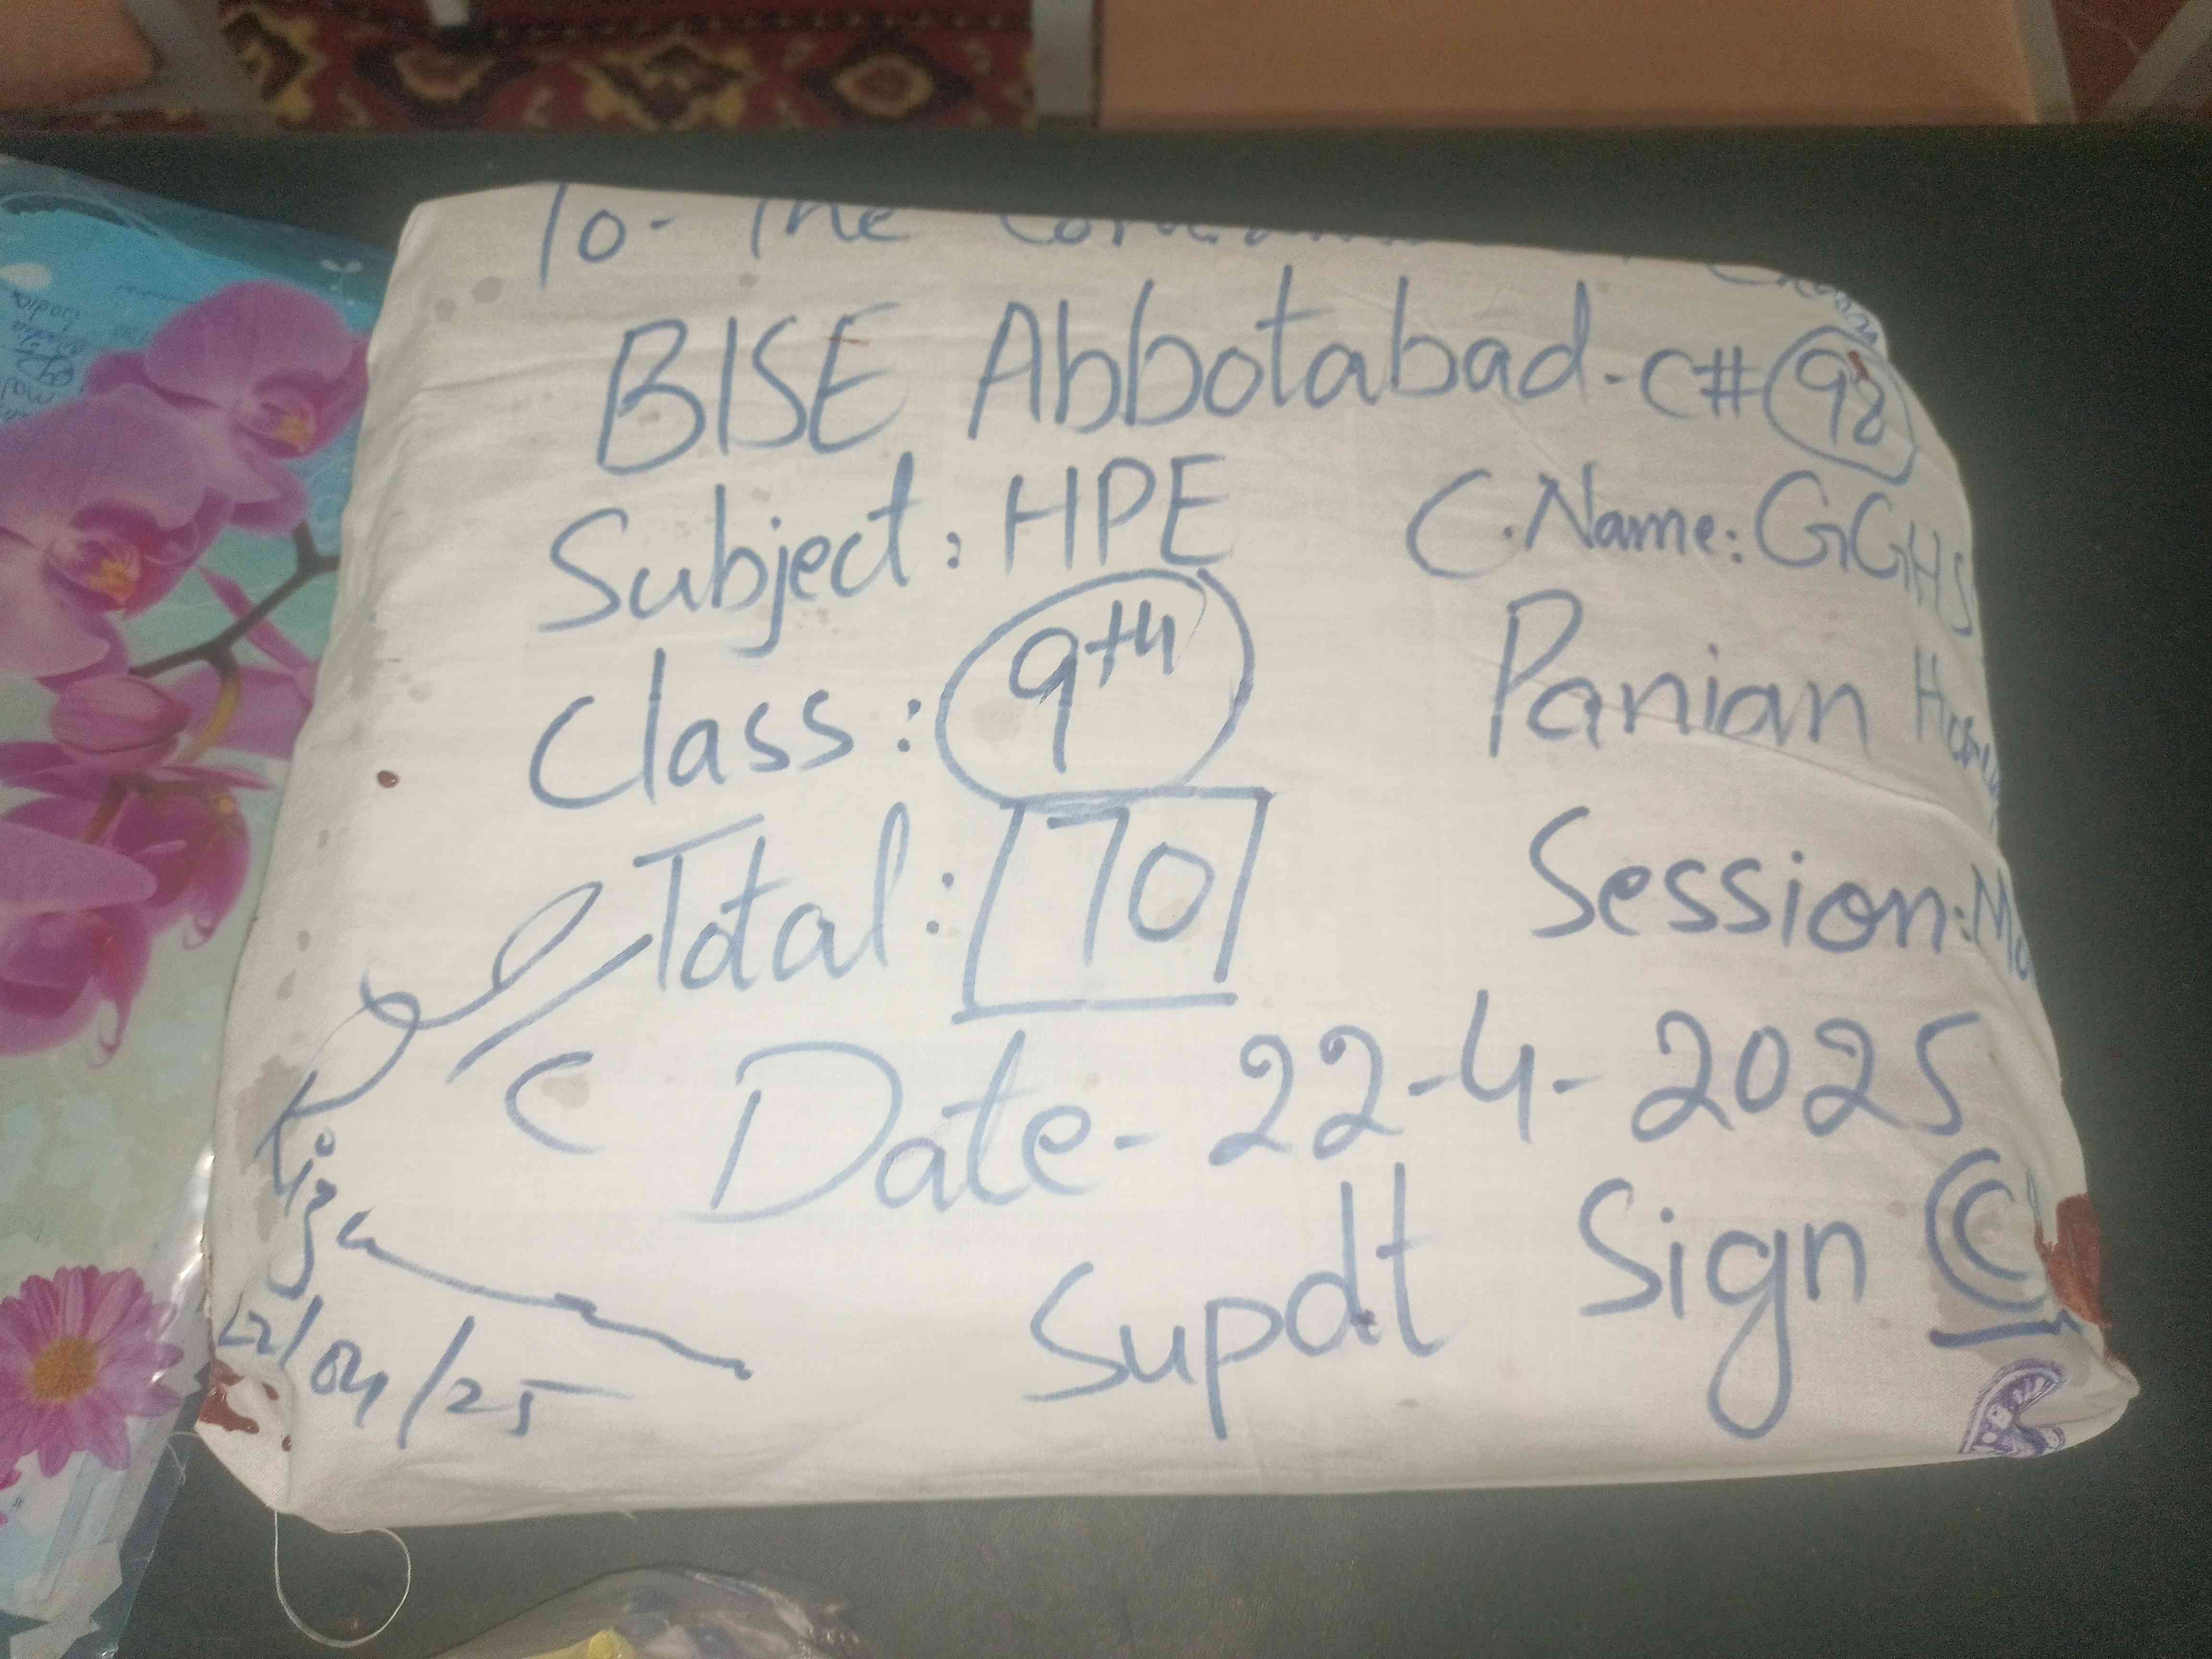 To- The
BISE Abbotabad - C# 98
Subject: HPE C. Name: GGHS
Class: 9th Panian
Total: 70 Session:
Date- 22-4-2025
Supdt Sign
22/04/25